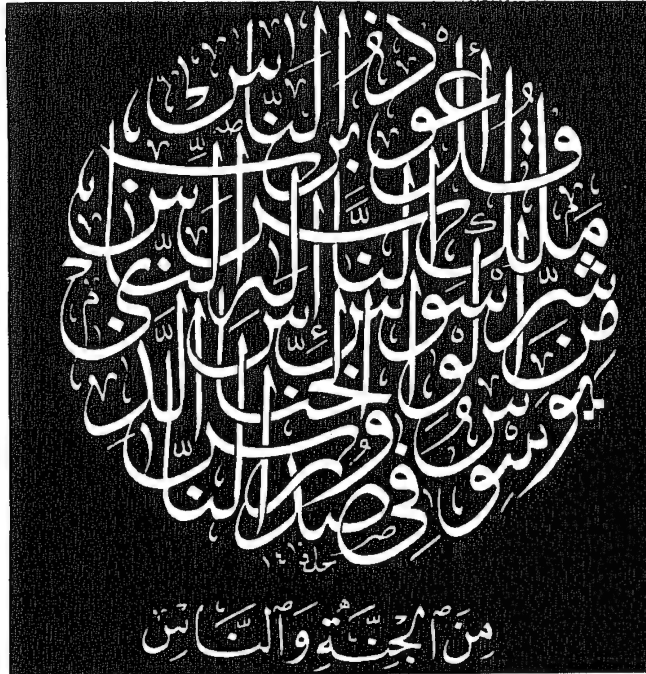 قل أعوذ برب الناس
ملك الناس إله الناس
من شر الوسواس الخناس الذي
يوسوس في صدور الناس
مِنَ ٱلْجِنَّةِ وَٱلنَّاسِ